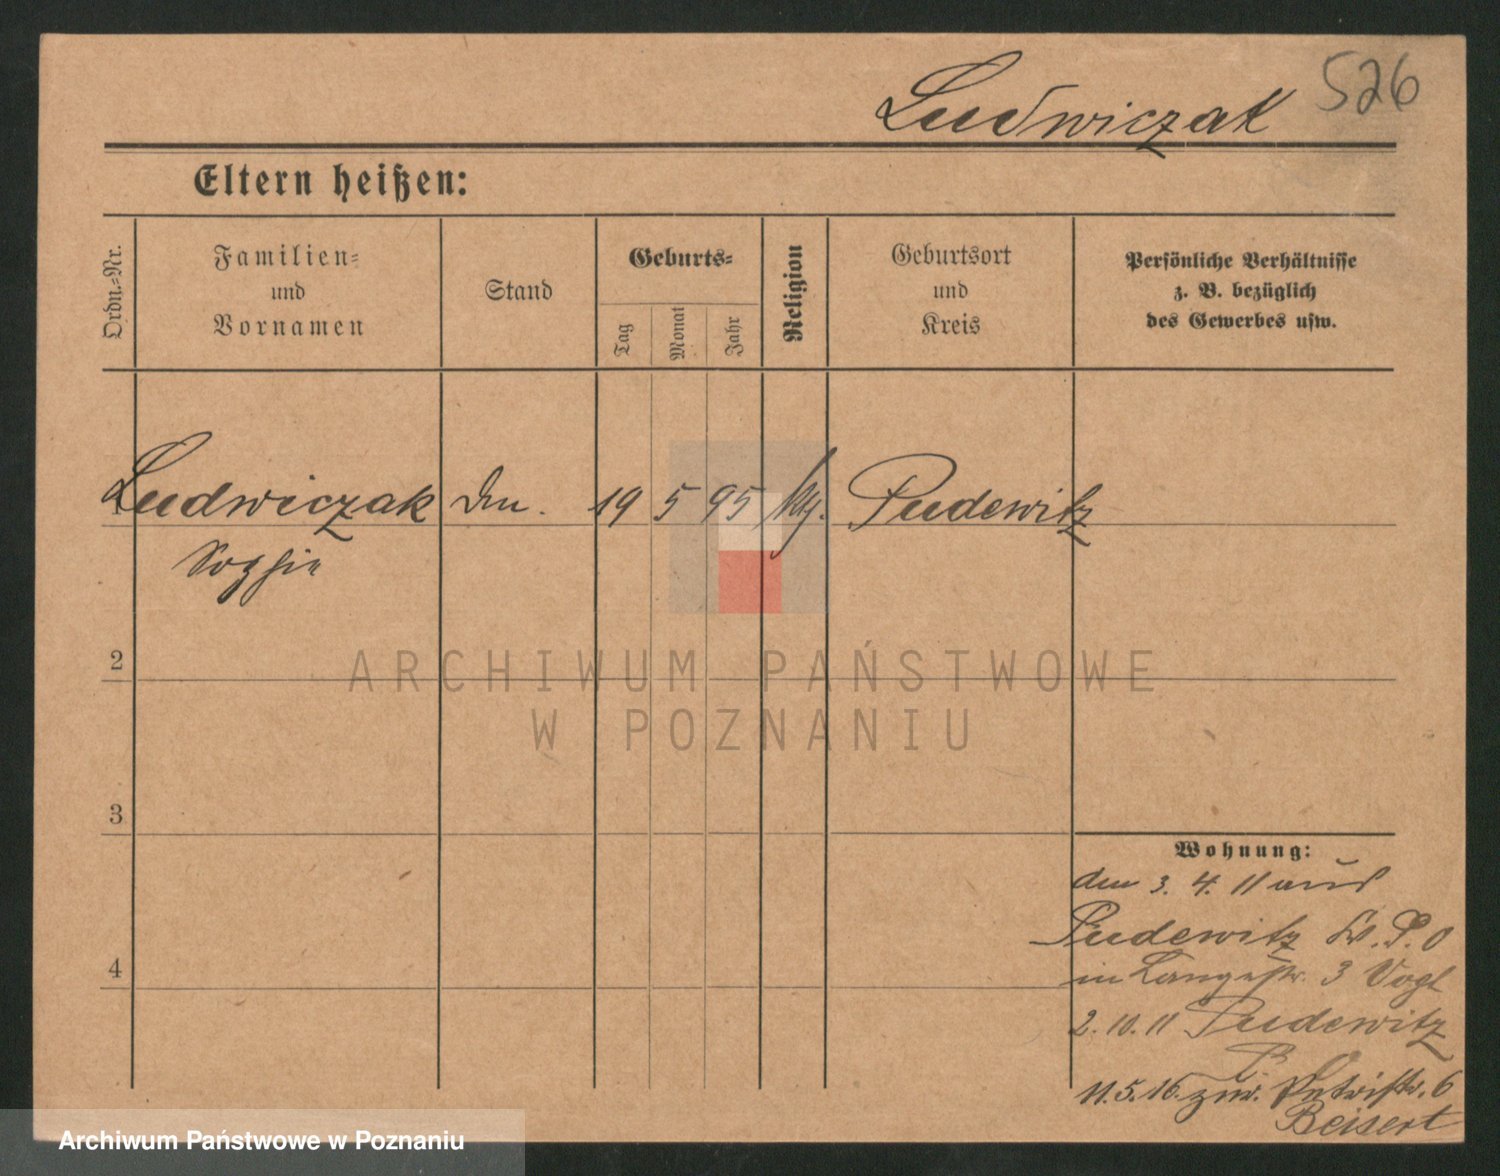 526
Ludwiczak
Eltern heißen:
Ordn.-Nr.
Familien-
und
Vornamen
Stand
Geburts-
Tag
Monat
Jahr
Religion
Geburtsort
und
Kreis
Persönliche Verhältnisse
z. B. bezüglich
des Gewerbes usw.
1 Ludwiczak 19 5 95 Pudewitz
Sophie
2
ARCHIWUM PAŃSTWOWE
W POZNANIU
3
Wohnung:
den 3. 4. 11 aus
Pudewitz P. O
in Langestr. 3 Vogt
2. 10. 11 Pudewitz
4
11. 5. 16. zur. Petristr. 6
Beisert
Archiwum Państwowe w Poznaniu